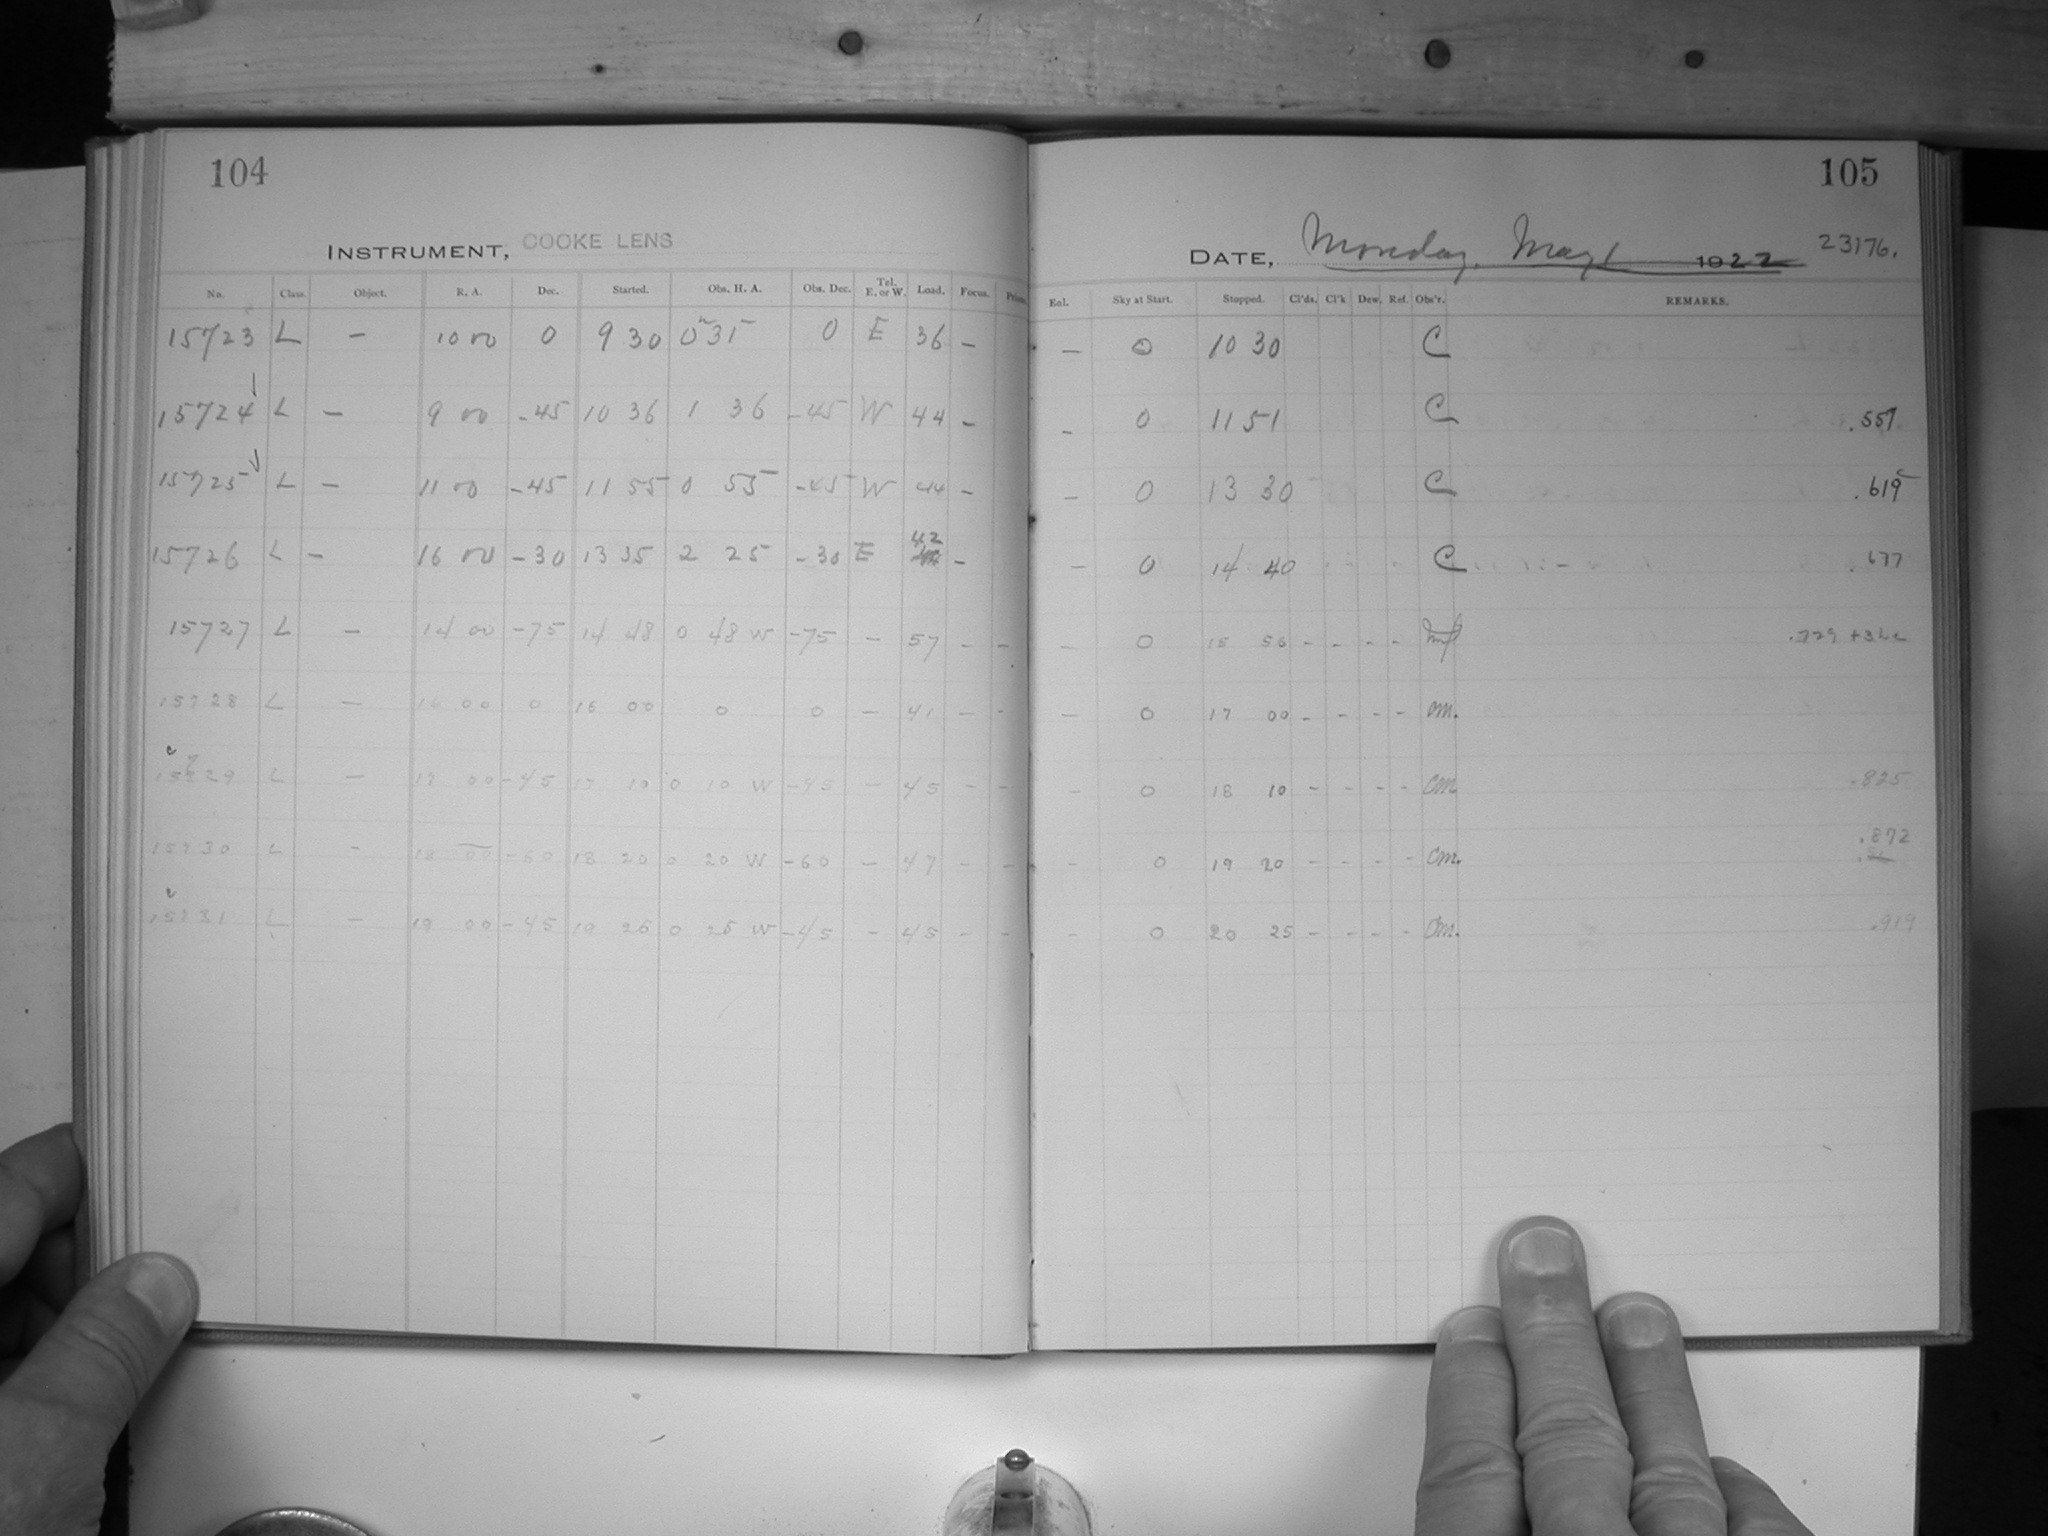 104
INSTRUMENT, COOKE LENS
No. Class. Object. R. A. Dec. Started. Obs. H. A. Obs. Dec. Tel. E. or W. Load. Focus.
15723 L – 10 00 0 9 30 0 31 0 E 36 –
15724 L – 9 00 -45 10 36 1 36 -45 W 44 –
15725 L – 11 00 -45 11 55 0 55 -45 W 44 –
15726 L – 16 00 -30 13 35 2 25 -30 E 42 –
15727 L – 14 00 -75 14 48 0 48 W -75 – 57 – –
15728 L – 16 00 0 16 00 0 0 – 41 – –
15729 L – 17 00 -45 17 10 0 10 W -45 – 45 – –
15730 L – 18 00 -60 18 20 0 20 W -60 – 47 – –
15731 L – 19 00 -45 19 26 0 26 W -45 – 45 – –
105
DATE, Monday, May 1 1922 23176.
Enl. Sky at Start. Stopped. Cl'ds. Cl'k Dew. Ref. Obs'r. REMARKS.
– 0 10 30 C
– 0 11 51 C .557
– 0 13 30 C .619
– 0 14 40 C .677
– 0 15 56 – – – – .729
– 0 17 00 – – – – Om.
– 0 18 10 – – – – Om .825
– 0 19 20 – – – – Om. .872
– 0 20 25 – – – – Om. .919